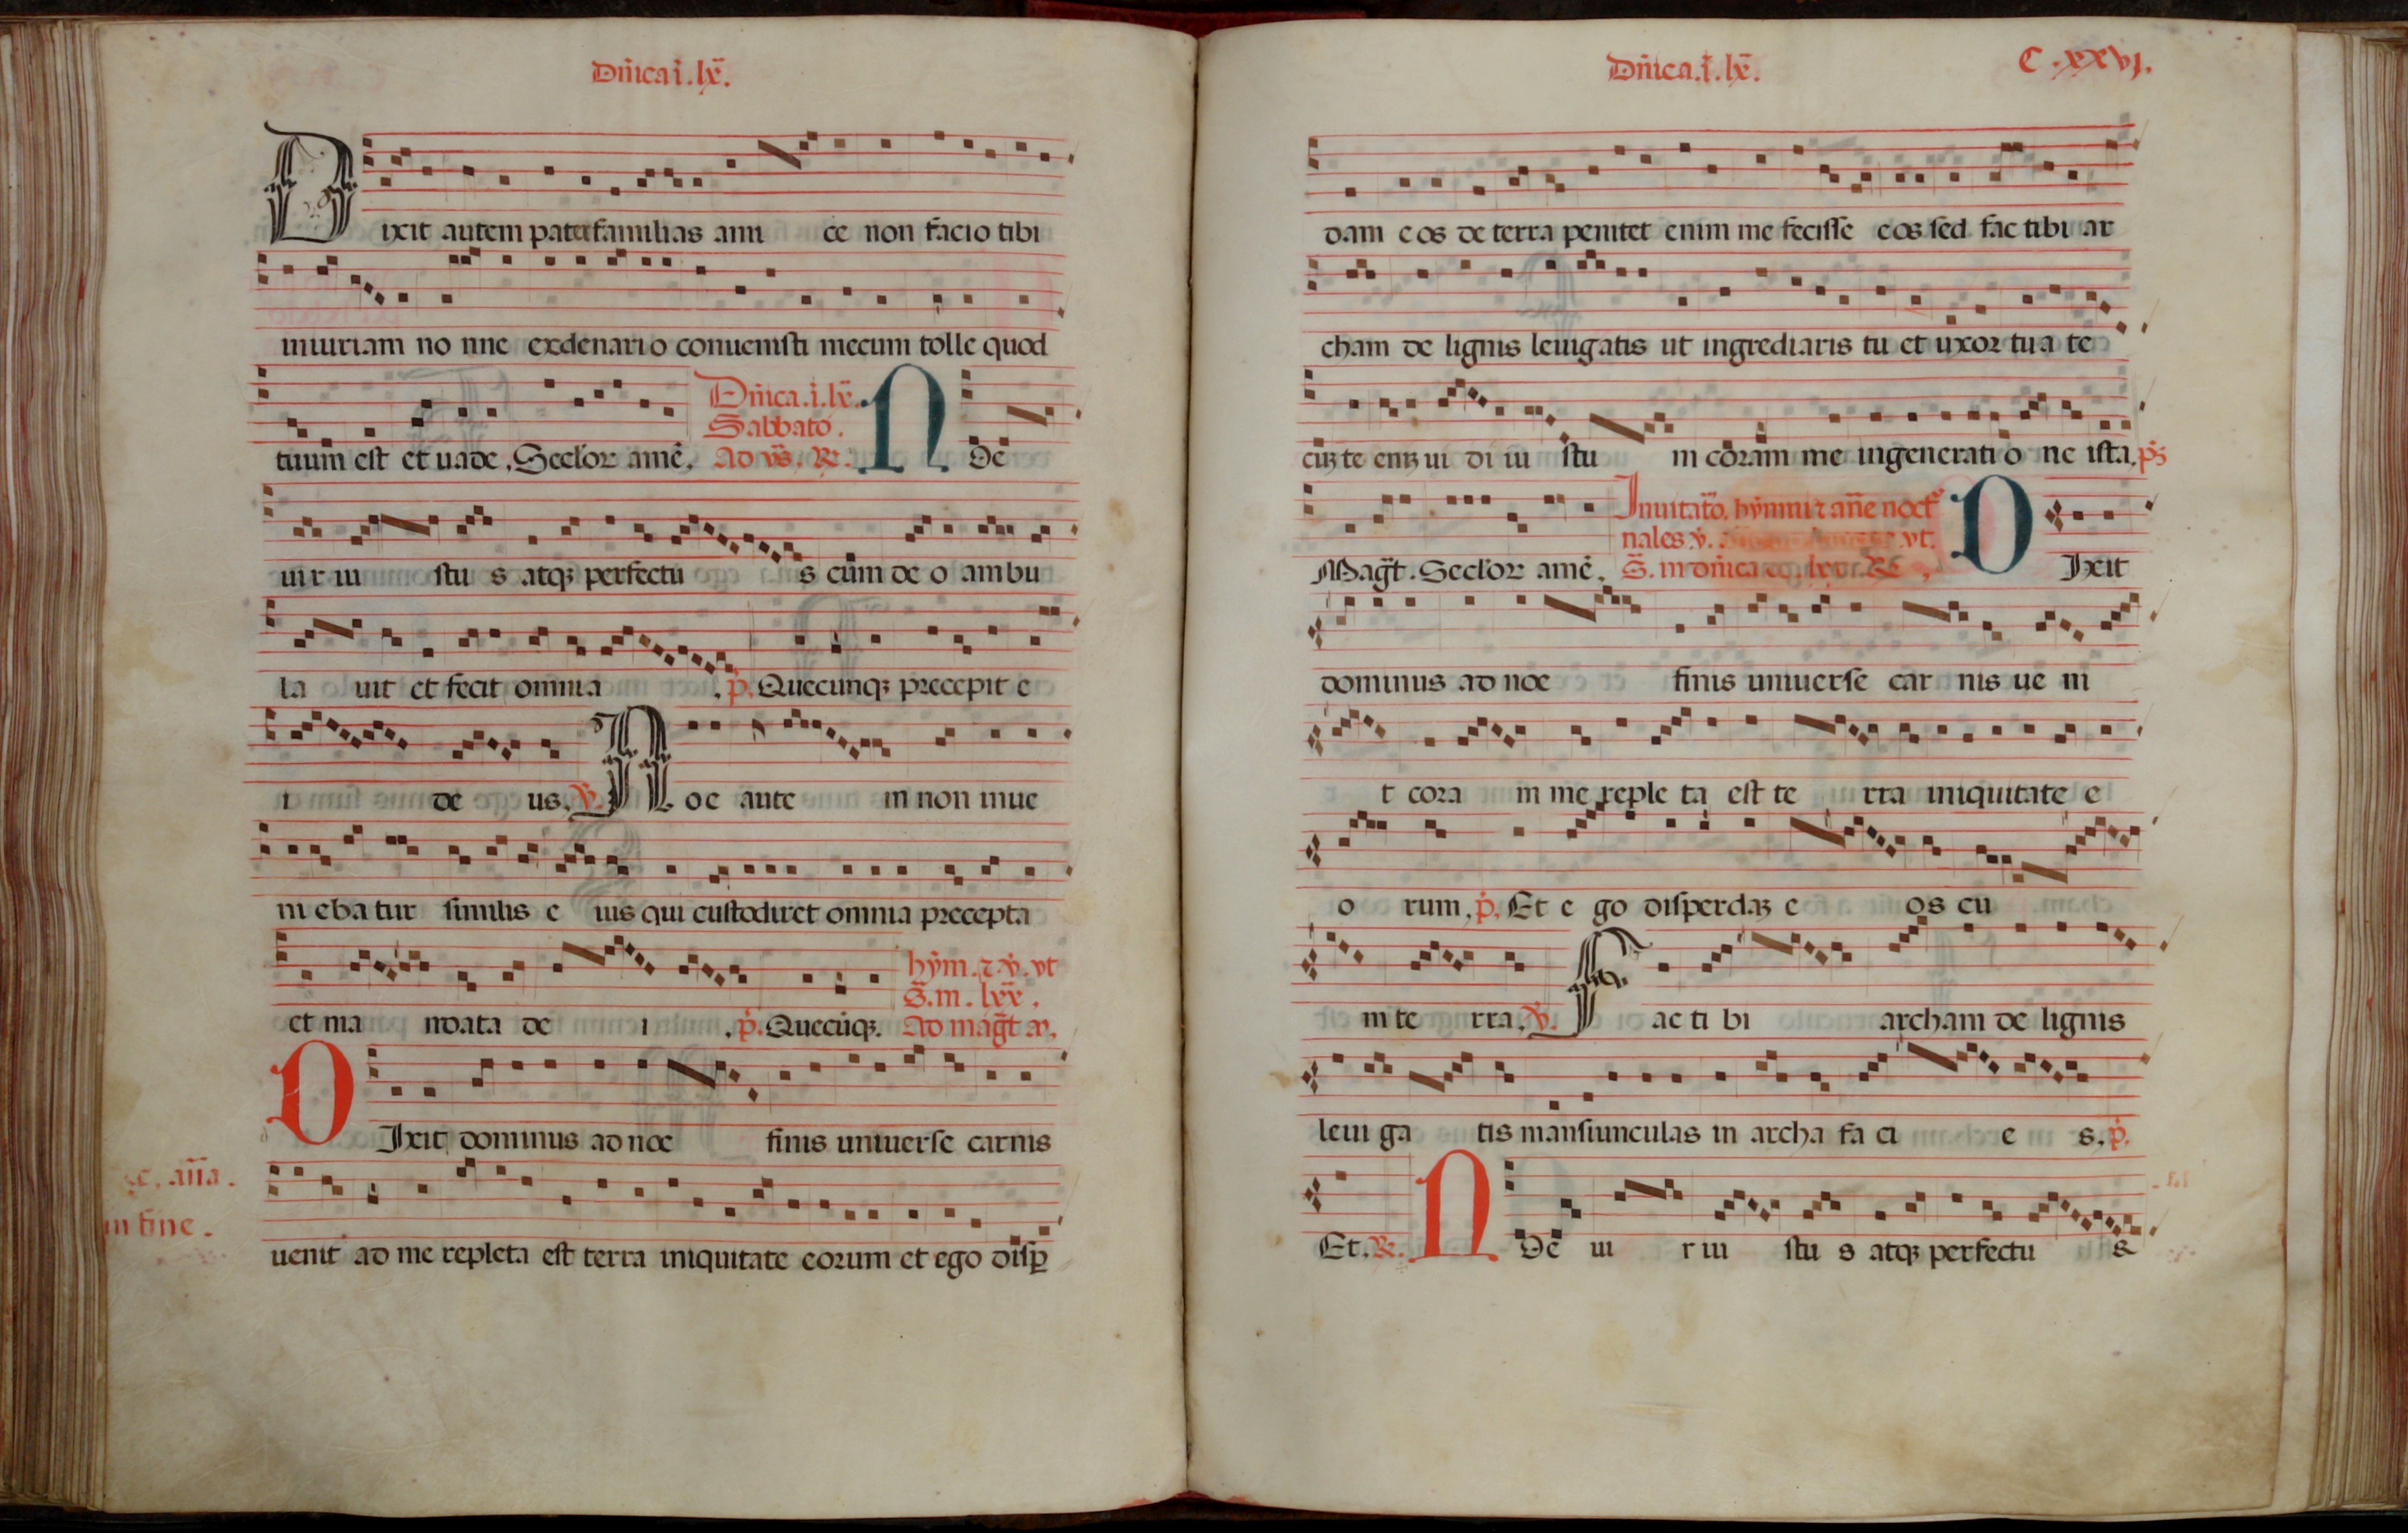 Dñica i. lx̄.
Dixit autem paterfamilias ami ce non facio tibi
iniuriam no nne exdenario conuenisti mecum tolle quod
tuum est et uade. Seclor amē. Dñica. i. lx̄. Sabbato. Ad vs̄. ℟. N oe
uir iu stu s atqꝫ perfectu s cum de o ambu
la uit et fecit omnia . p̄. Quecunqꝫ precepit e
i de us. ℣. N oe aute m non inue
ni ebatur similis e ius qui custodiret omnia precepta
et ma ndata de i . p̄. Quecūqꝫ. hym̄. ⁊. ℣. vt s̄. in. lxx̄. Ad maḡt a᷒.
D Ixit dominus ad noe finis uniuerse carnis
añа.
in fine.
uenit ad me repleta est terra iniquitate eorum et ego disꝑ
Dñica. i. lx̄. C. xxvj.
dam eos de terra penitet enim me fecisse eos sed fac tibi ar
cham de lignis leuigatis ut ingrediaris tu et uxor tua te
ciꝫ te eniꝫ ui di iu stu m coram me ingenerati o ne ista. p̄s
Maḡt. Seclor amē. Inuitato. hymni ⁊ añe noct nales ℣. vt. s̄. in dñica D Ixit
dominus ad noe finis uniuerse car nis ue ni
t cora m me reple ta est te rra iniquitate e
o rum. p̄. Et e go disperdaꝫ e os cu
m te rra. ℣. F ac ti bi archam de lignis
leui ga tis mansiunculas in archa fa ci e s. p̄.
Et. ℟. N oe ui r iu stu s atqꝫ perfectu s